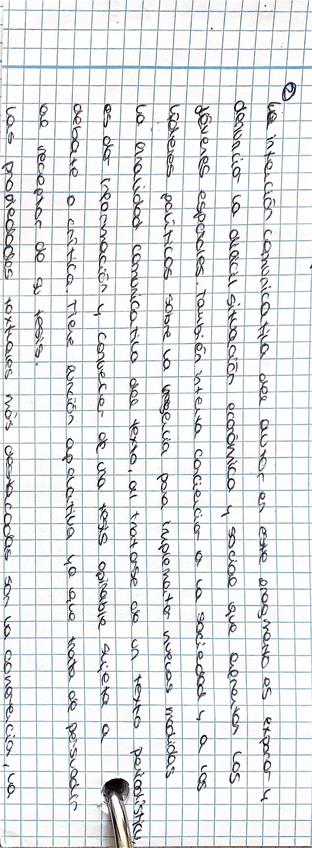 ②
La intención comunicativa del autor en este fragmento es exponer y
denunciar la difícil situación económica y social que atraviesan los
jóvenes españoles. También intenta concienciar a la sociedad y a los
líderes políticos sobre la urgencia para implementar nuevas medidas
La finalidad comunicativa del texto, al tratarse de un texto periodístico
es dar información y convencer de una tesis opinable sujeta a
debate o crítica. Tiene función apelativa ya que trata de persuadir
al receptor de su tesis.
Las propiedades textuales más destacadas son la coherencia, la